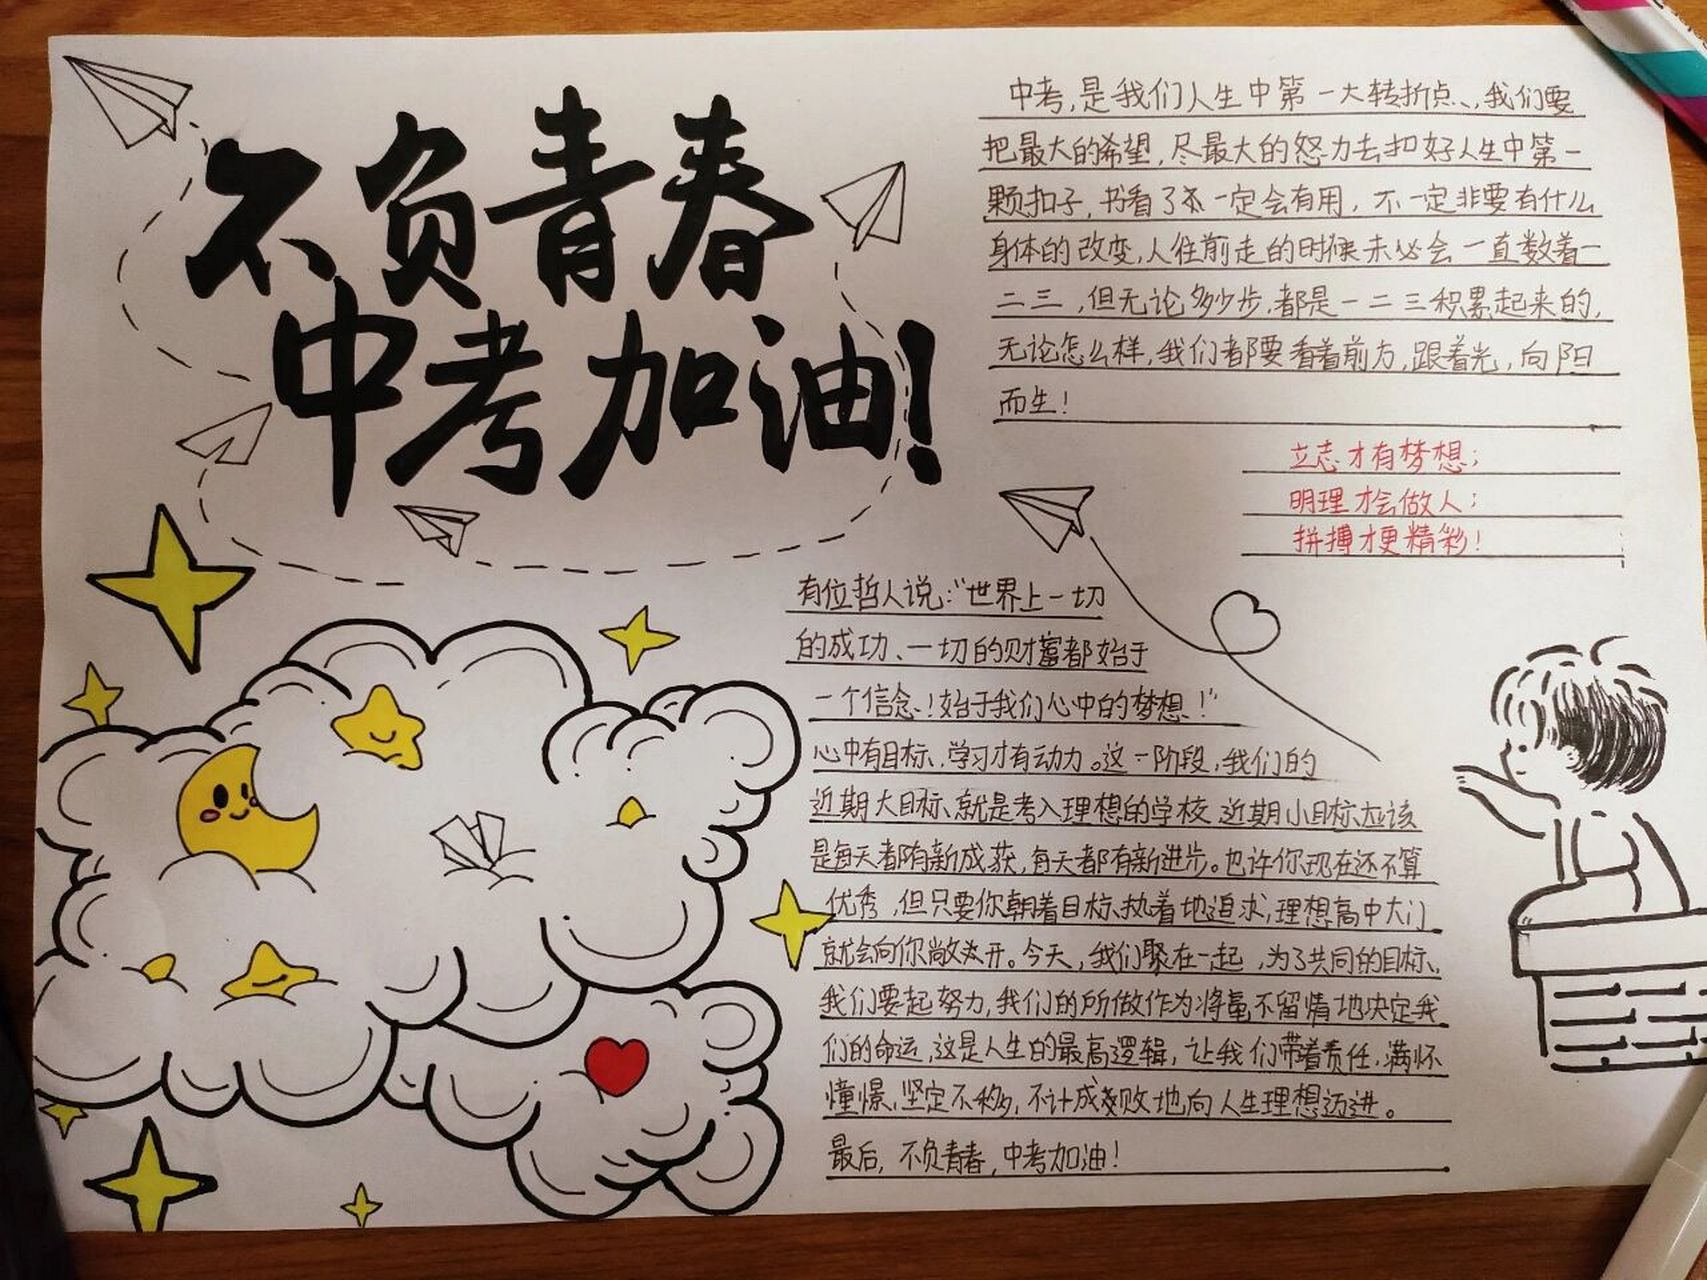 不负青春
中考加油!
中考,是我们人生中第一大转折点、,我们要
把最大的希望,尽最大的努力去扣好人生中第一
颗扣子,书看了不一定会有用,不一定非要有什么
身体的改变,人往前走的时候未必会一直数着一
二三,但无论多少步,都是一二三积累起来的,
无论怎么样,我们都要看着前方,跟着光,向阳
而生!
立志才有梦想;
明理才会做人;
拼搏才更精彩!
有位哲人说:“世界上一切
的成功、一切的财富都始于
一个信念!始于我们心中的梦想!”
心中有目标,学习才有动力。这一阶段,我们的
近期大目标,就是考入理想的学校,近期小目标应该
是每天都有新成获,每天都有新进步。也许你现在还不算
优秀,但只要你朝着目标,执着地追求,理想高中大门
就会向你敞开。今天,我们聚在一起,为了共同的目标,
我们要起努力,我们的所做作为将毫不留情地决定我
们的命运,这是人生的最高逻辑,让我们带着责任,满怀
憧憬,坚定不移,不计成败地向人生理想迈进。
最后,不负青春,中考加油!